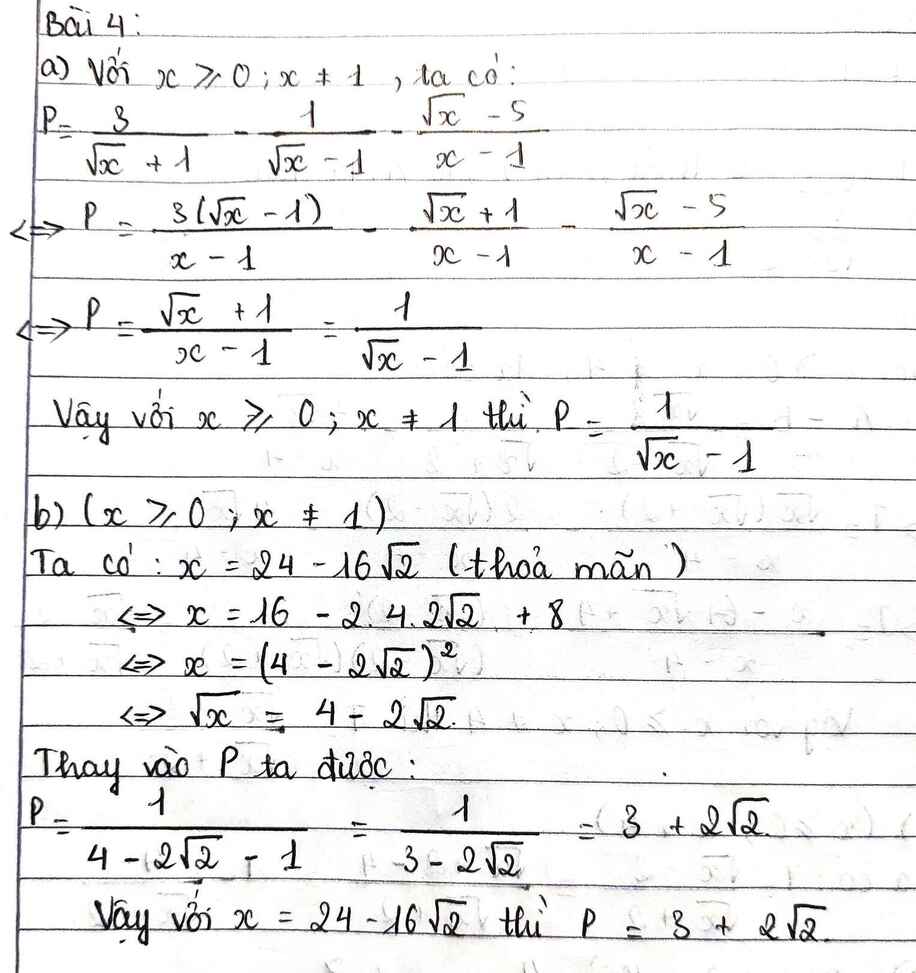 Bài 4:
a) Với x ⩾ 0 ; x ≠ 1 , ta có:
P = 3/(√x + 1) - 1/(√x - 1) - (√x - 5)/(x - 1)
<=> P = 3(√x - 1)/(x - 1) - (√x + 1)/(x - 1) - (√x - 5)/(x - 1)
<=> P = (√x + 1)/(x - 1) = 1/(√x - 1)
Vậy với x ⩾ 0 ; x ≠ 1 thì P = 1/(√x - 1)
b) (x ⩾ 0 ; x ≠ 1)
Ta có : x = 24 - 16√2 (thoả mãn)
<=> x = 16 - 2.4.2√2 + 8
<=> x = (4 - 2√2)²
<=> √x = 4 - 2√2.
Thay vào P ta được :
P = 1/(4 - 2√2 - 1) = 1/(3 - 2√2) = 3 + 2√2.
Vậy với x = 24 - 16√2 thì P = 3 + 2√2.